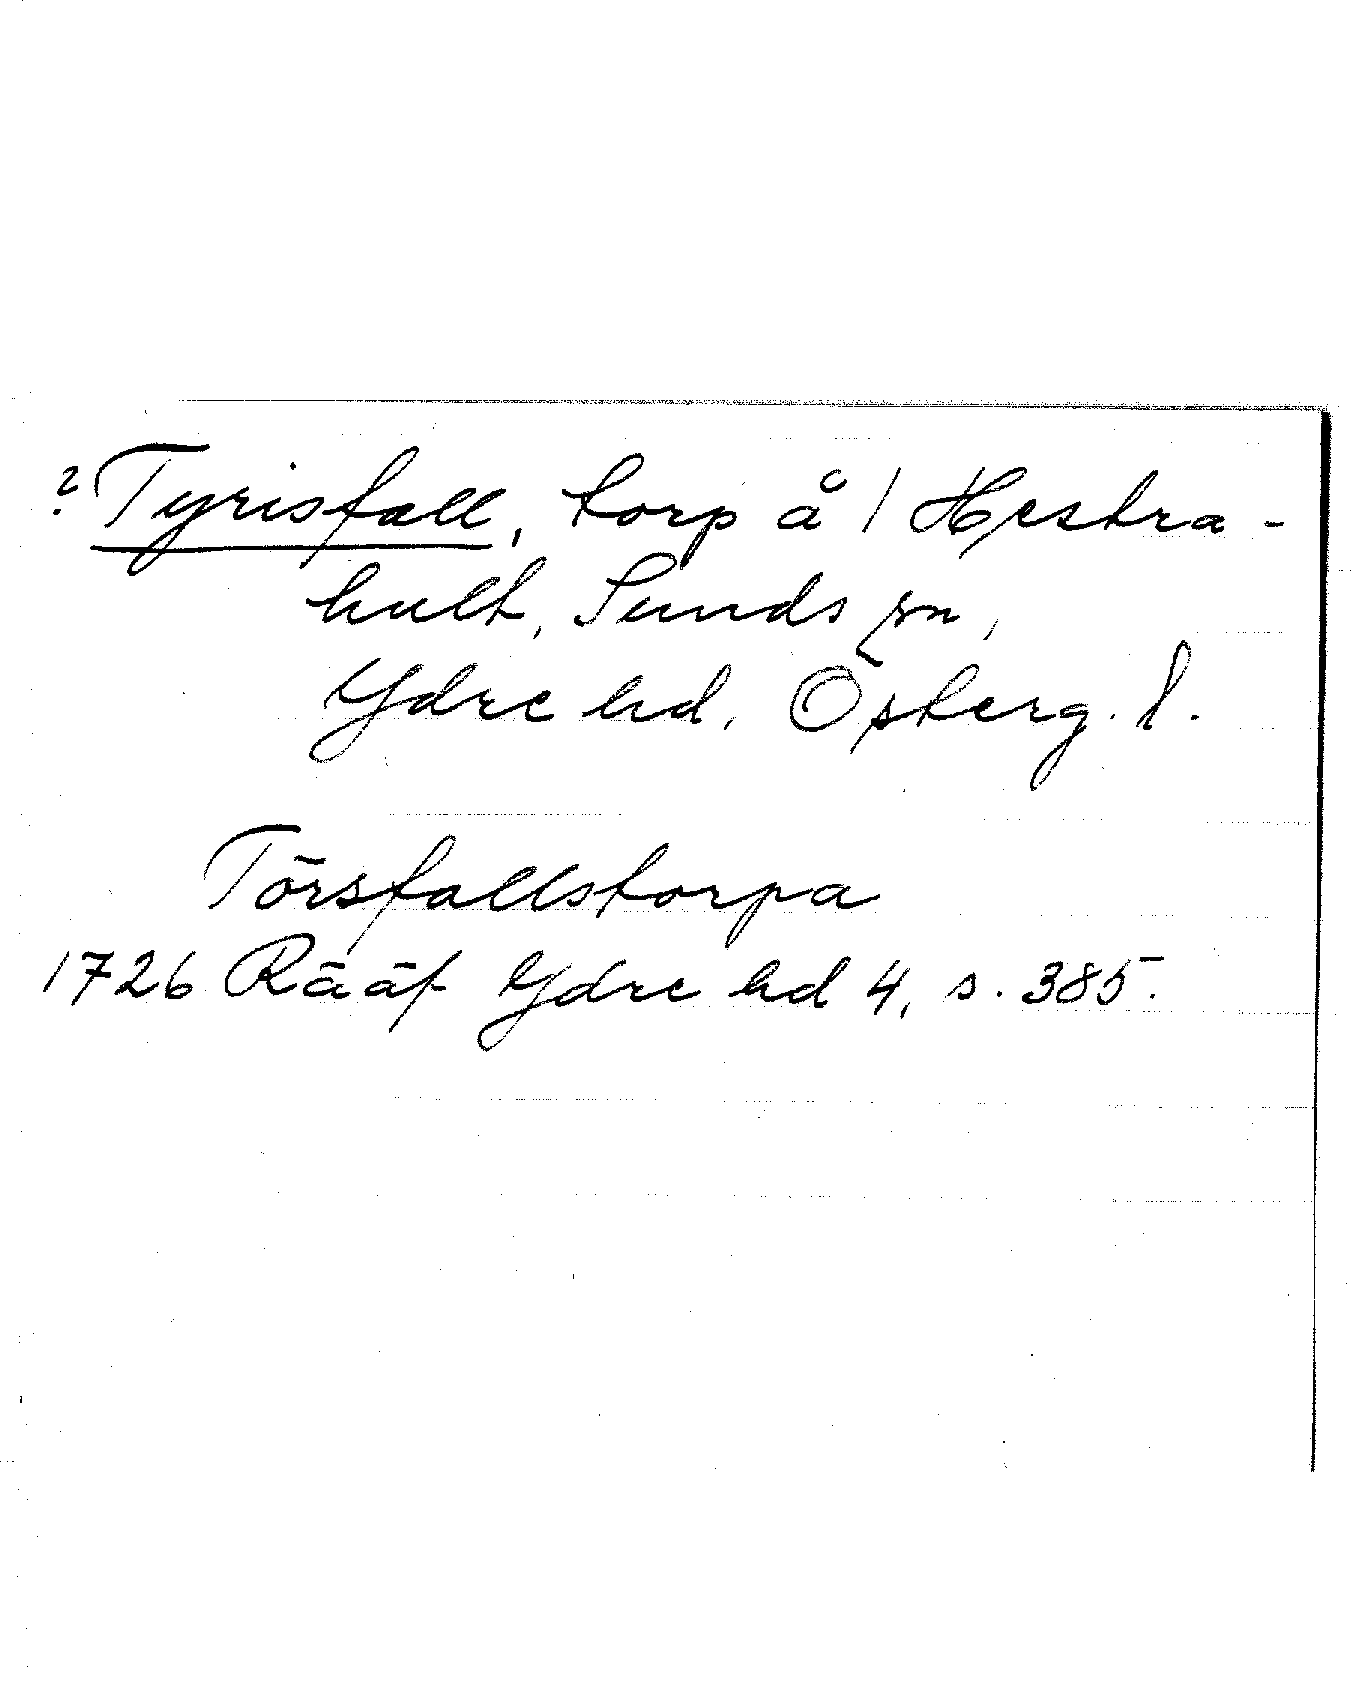 ? Tyrisfall, torp å / Hestra-
hult, Sunds sn,
Ydre hd, Österg. l.
Törsfallstorpa
1726 Rääf Ydre hd 4, s. 385.